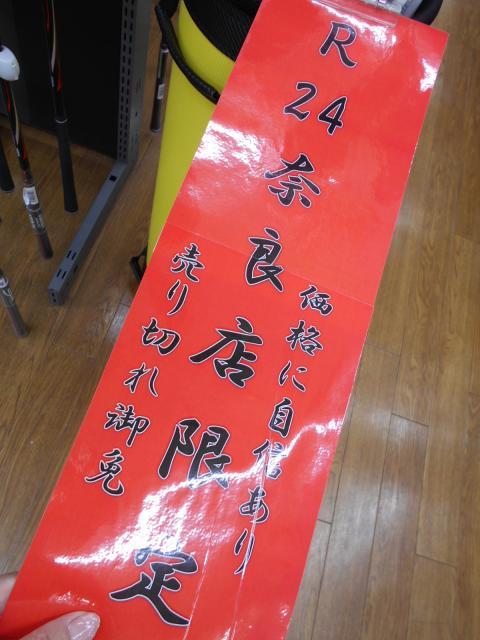 R24奈良店限定
価格に自信あり
売り切れ御免